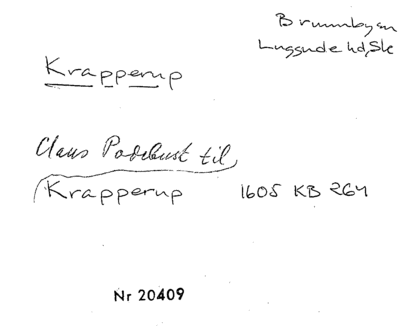 Brunnbyan
Luggude hd, Sk
Krapperup
Claus Podebust til
Krapperup 1605 KB 264
Nr 20409